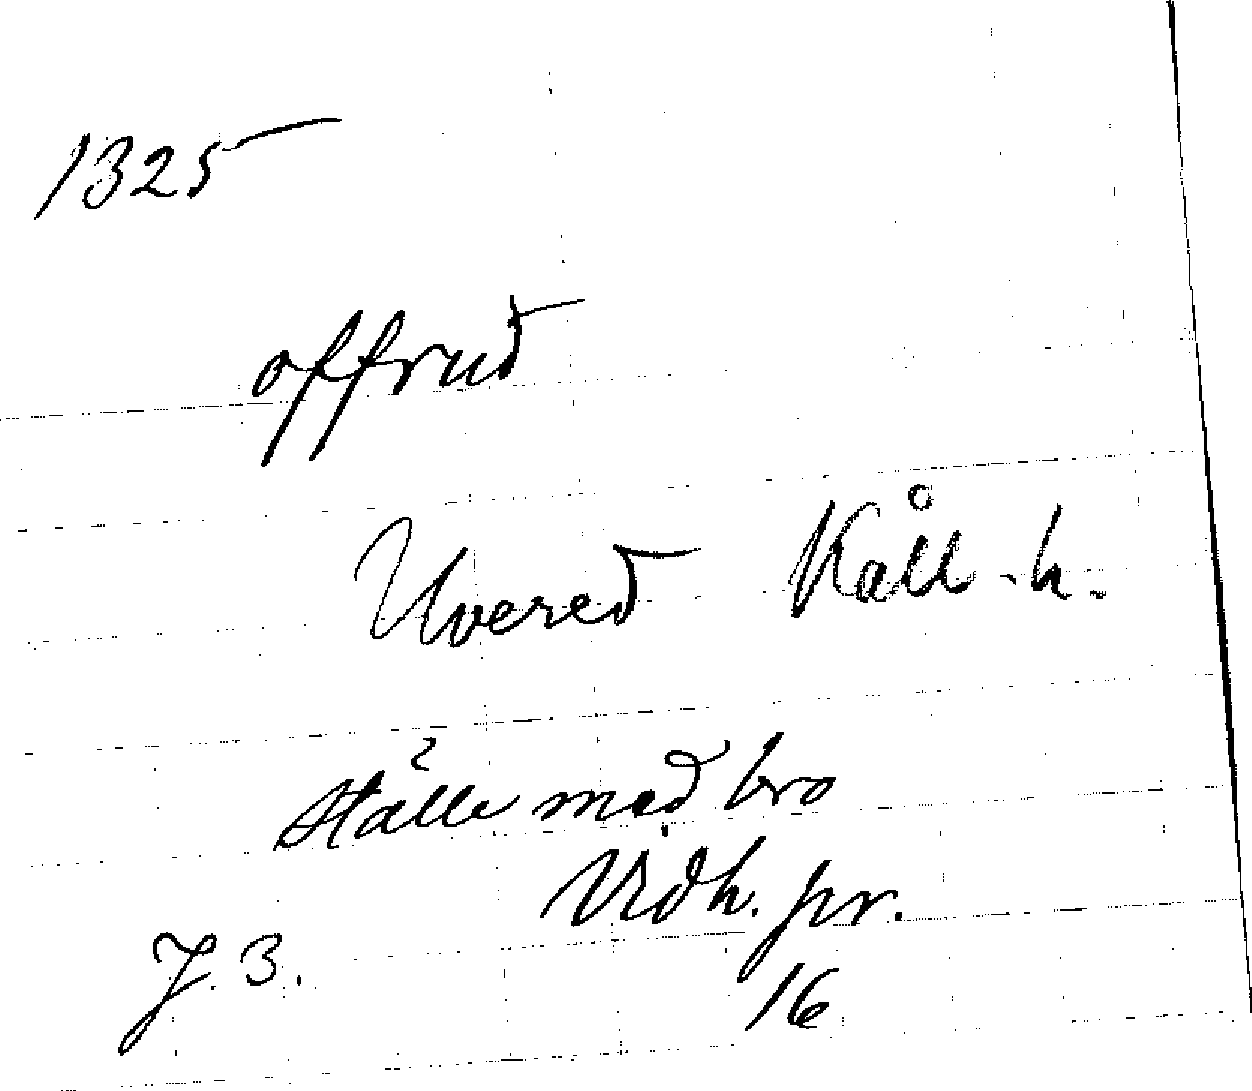 1325
offrud
Uvered Kåll-h.
Ställe med bro
Vidh. pr.
J. 3. 16